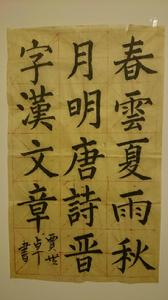 春雲夏雨秋
月明唐詩晋
字漢文章
賈世卓書